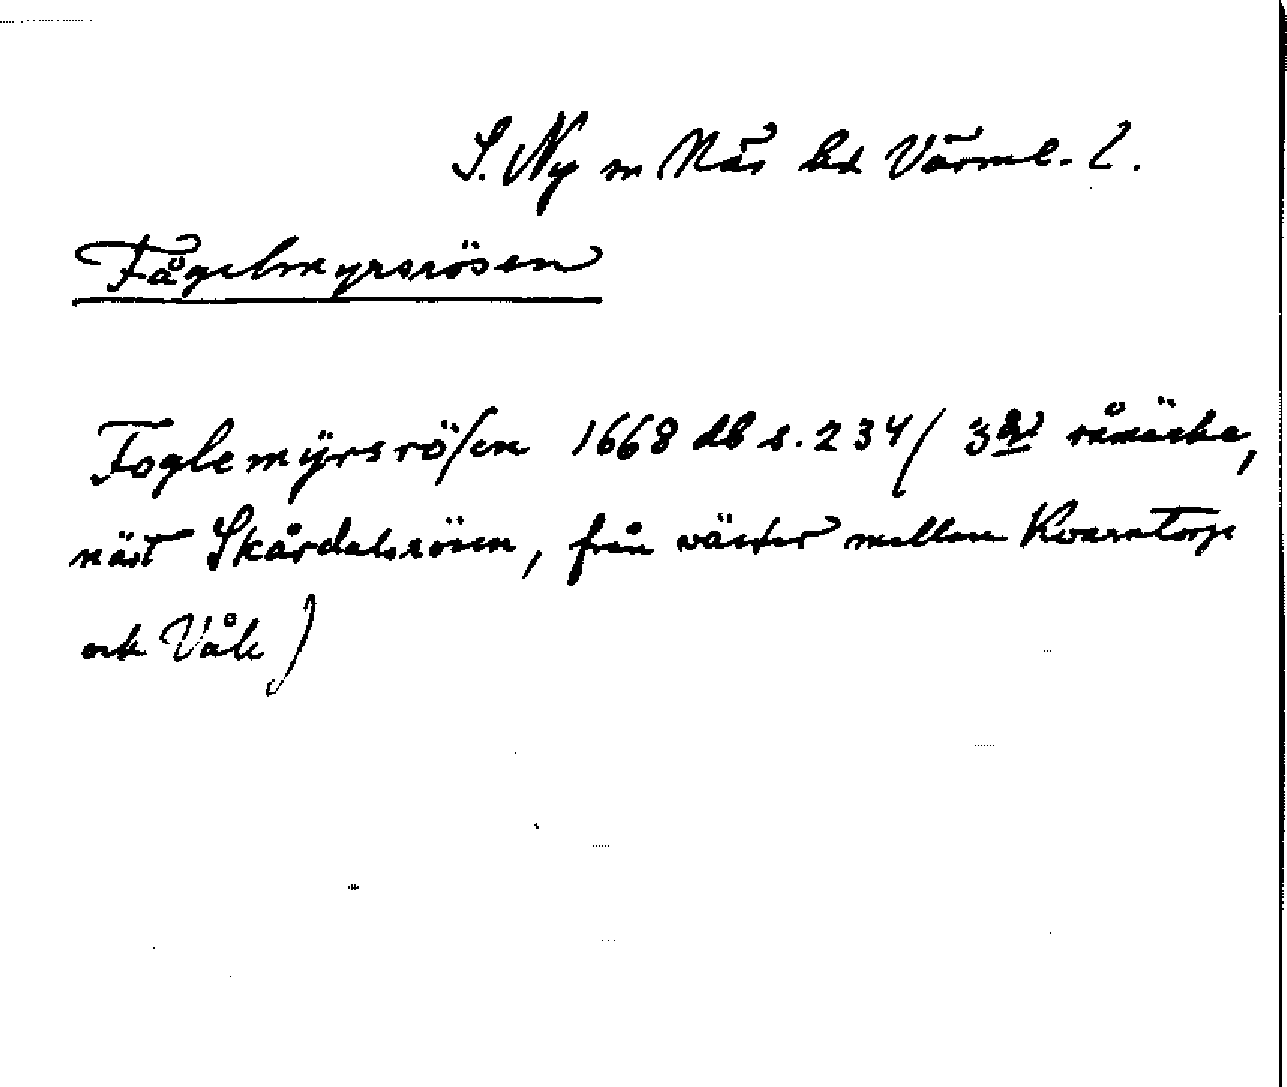 S. Ny sn Näs hd Värml. l.
Fågelmyrsrösen
Foglemÿrsrösen 1668 db s. 234 (3dje råmärke,
näst Skårdalsrösen, från wäster mellan Kvarntorp
och Våk)